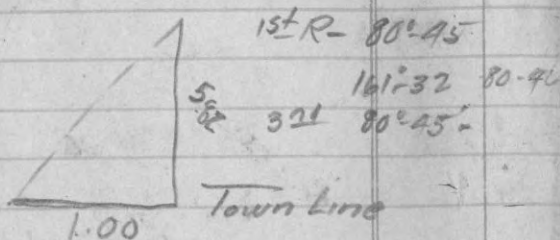 1st R- 80°-45
161°-32 80-4
3rd 80°-45'-
Town Line
1.00